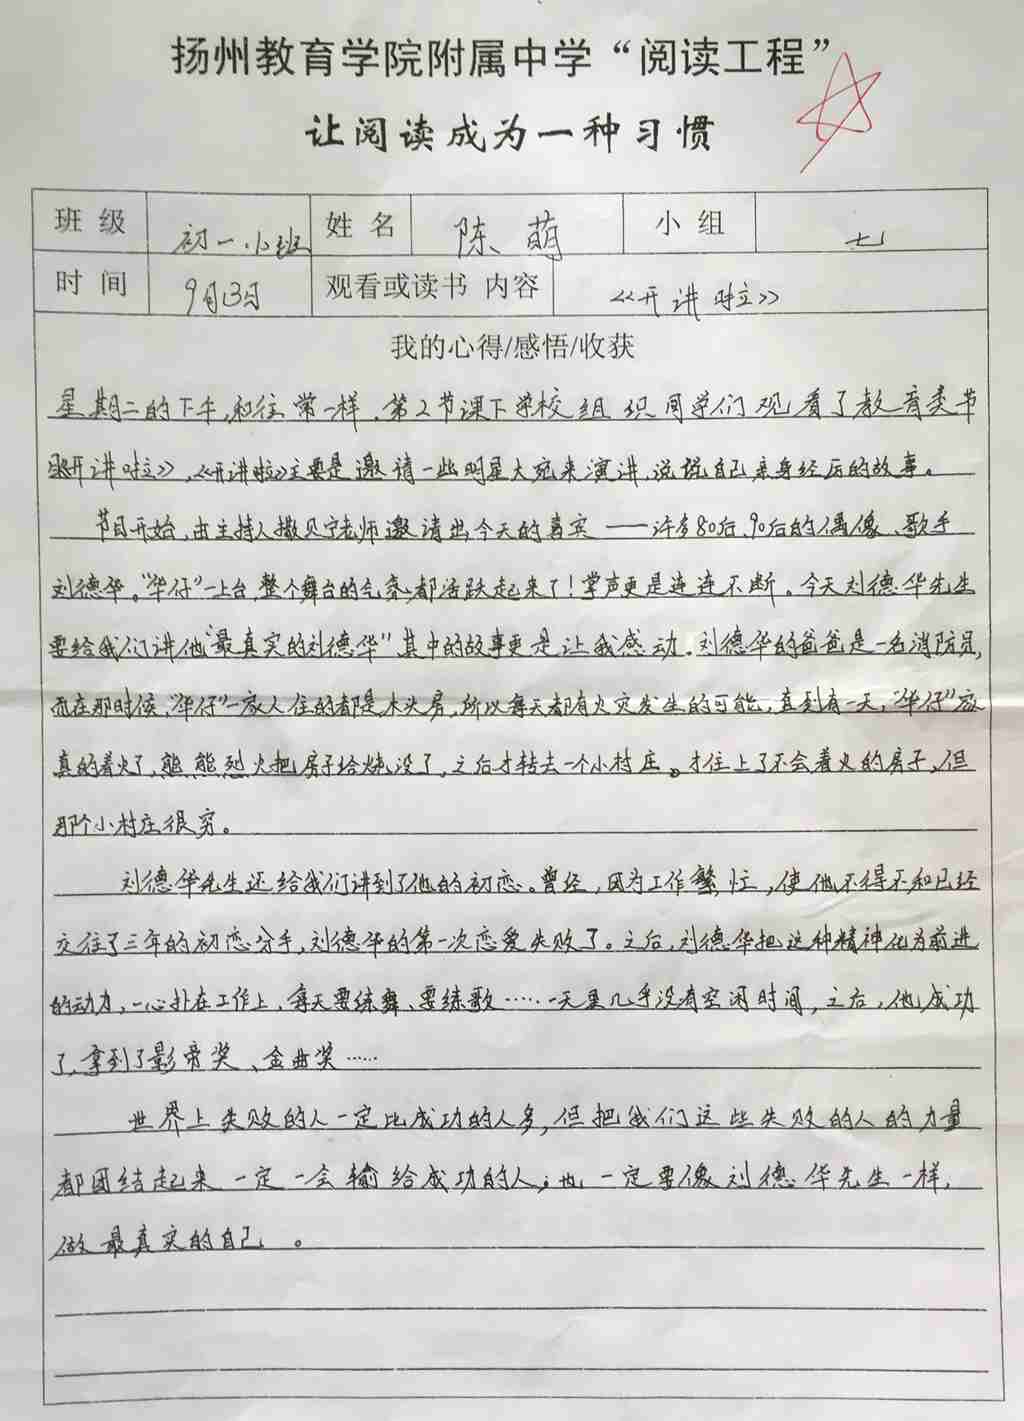 扬州教育学院附属中学“阅读工程”
让阅读成为一种习惯
班 级 初一.小班 姓 名 陈萌 小 组 七
时 间 9月13日 观看或读书 内容 《开讲啦》
我的心得/感悟/收获
星期二的下午,和往常一样,第2节课下学校组织同学们观看了教育类节
《开讲啦》,《开讲啦》主要是邀请一些明星大宛来演讲,说说自己亲身经历的故事。
节目开始,由主持人撒贝宁老师邀请出今天的嘉宾——许多80后、90后的偶像、歌手
刘德华。“华仔”一上台,整个舞台的气氛都活跃起来了!掌声更是连连不断。今天刘德华先生
要给我们讲他“最真实的刘德华”其中的故事更是让我感动。刘德华的爸爸是一名消防员,
而在那时候,“华仔”一家人住的都是木头房,所以每天都有火灾发生的可能,直到有一天,“华仔”家
真的着火了,熊熊烈火把房子给烧没了,之后才转去一个小村庄。才住上了不会着火的房子,但
那个小村庄很穷。
刘德华先生还给我们讲到了他的初恋。曾经,因为工作繁忙,使他不得不和已经
交往了三年的初恋分手,刘德华的第一次恋爱失败了。之后,刘德华把这种精神化为前进
的动力,一心扑在工作上,每天要练舞、要练歌……一天里几乎没有空闲时间,之后,他成功
了,拿到了影帝奖、金曲奖……
世界上失败的人一定比成功的人多,但把我们这些失败的人的力量
都团结起来一定一会输给成功的人;一定要像刘德华先生一样,
做最真实的自己。